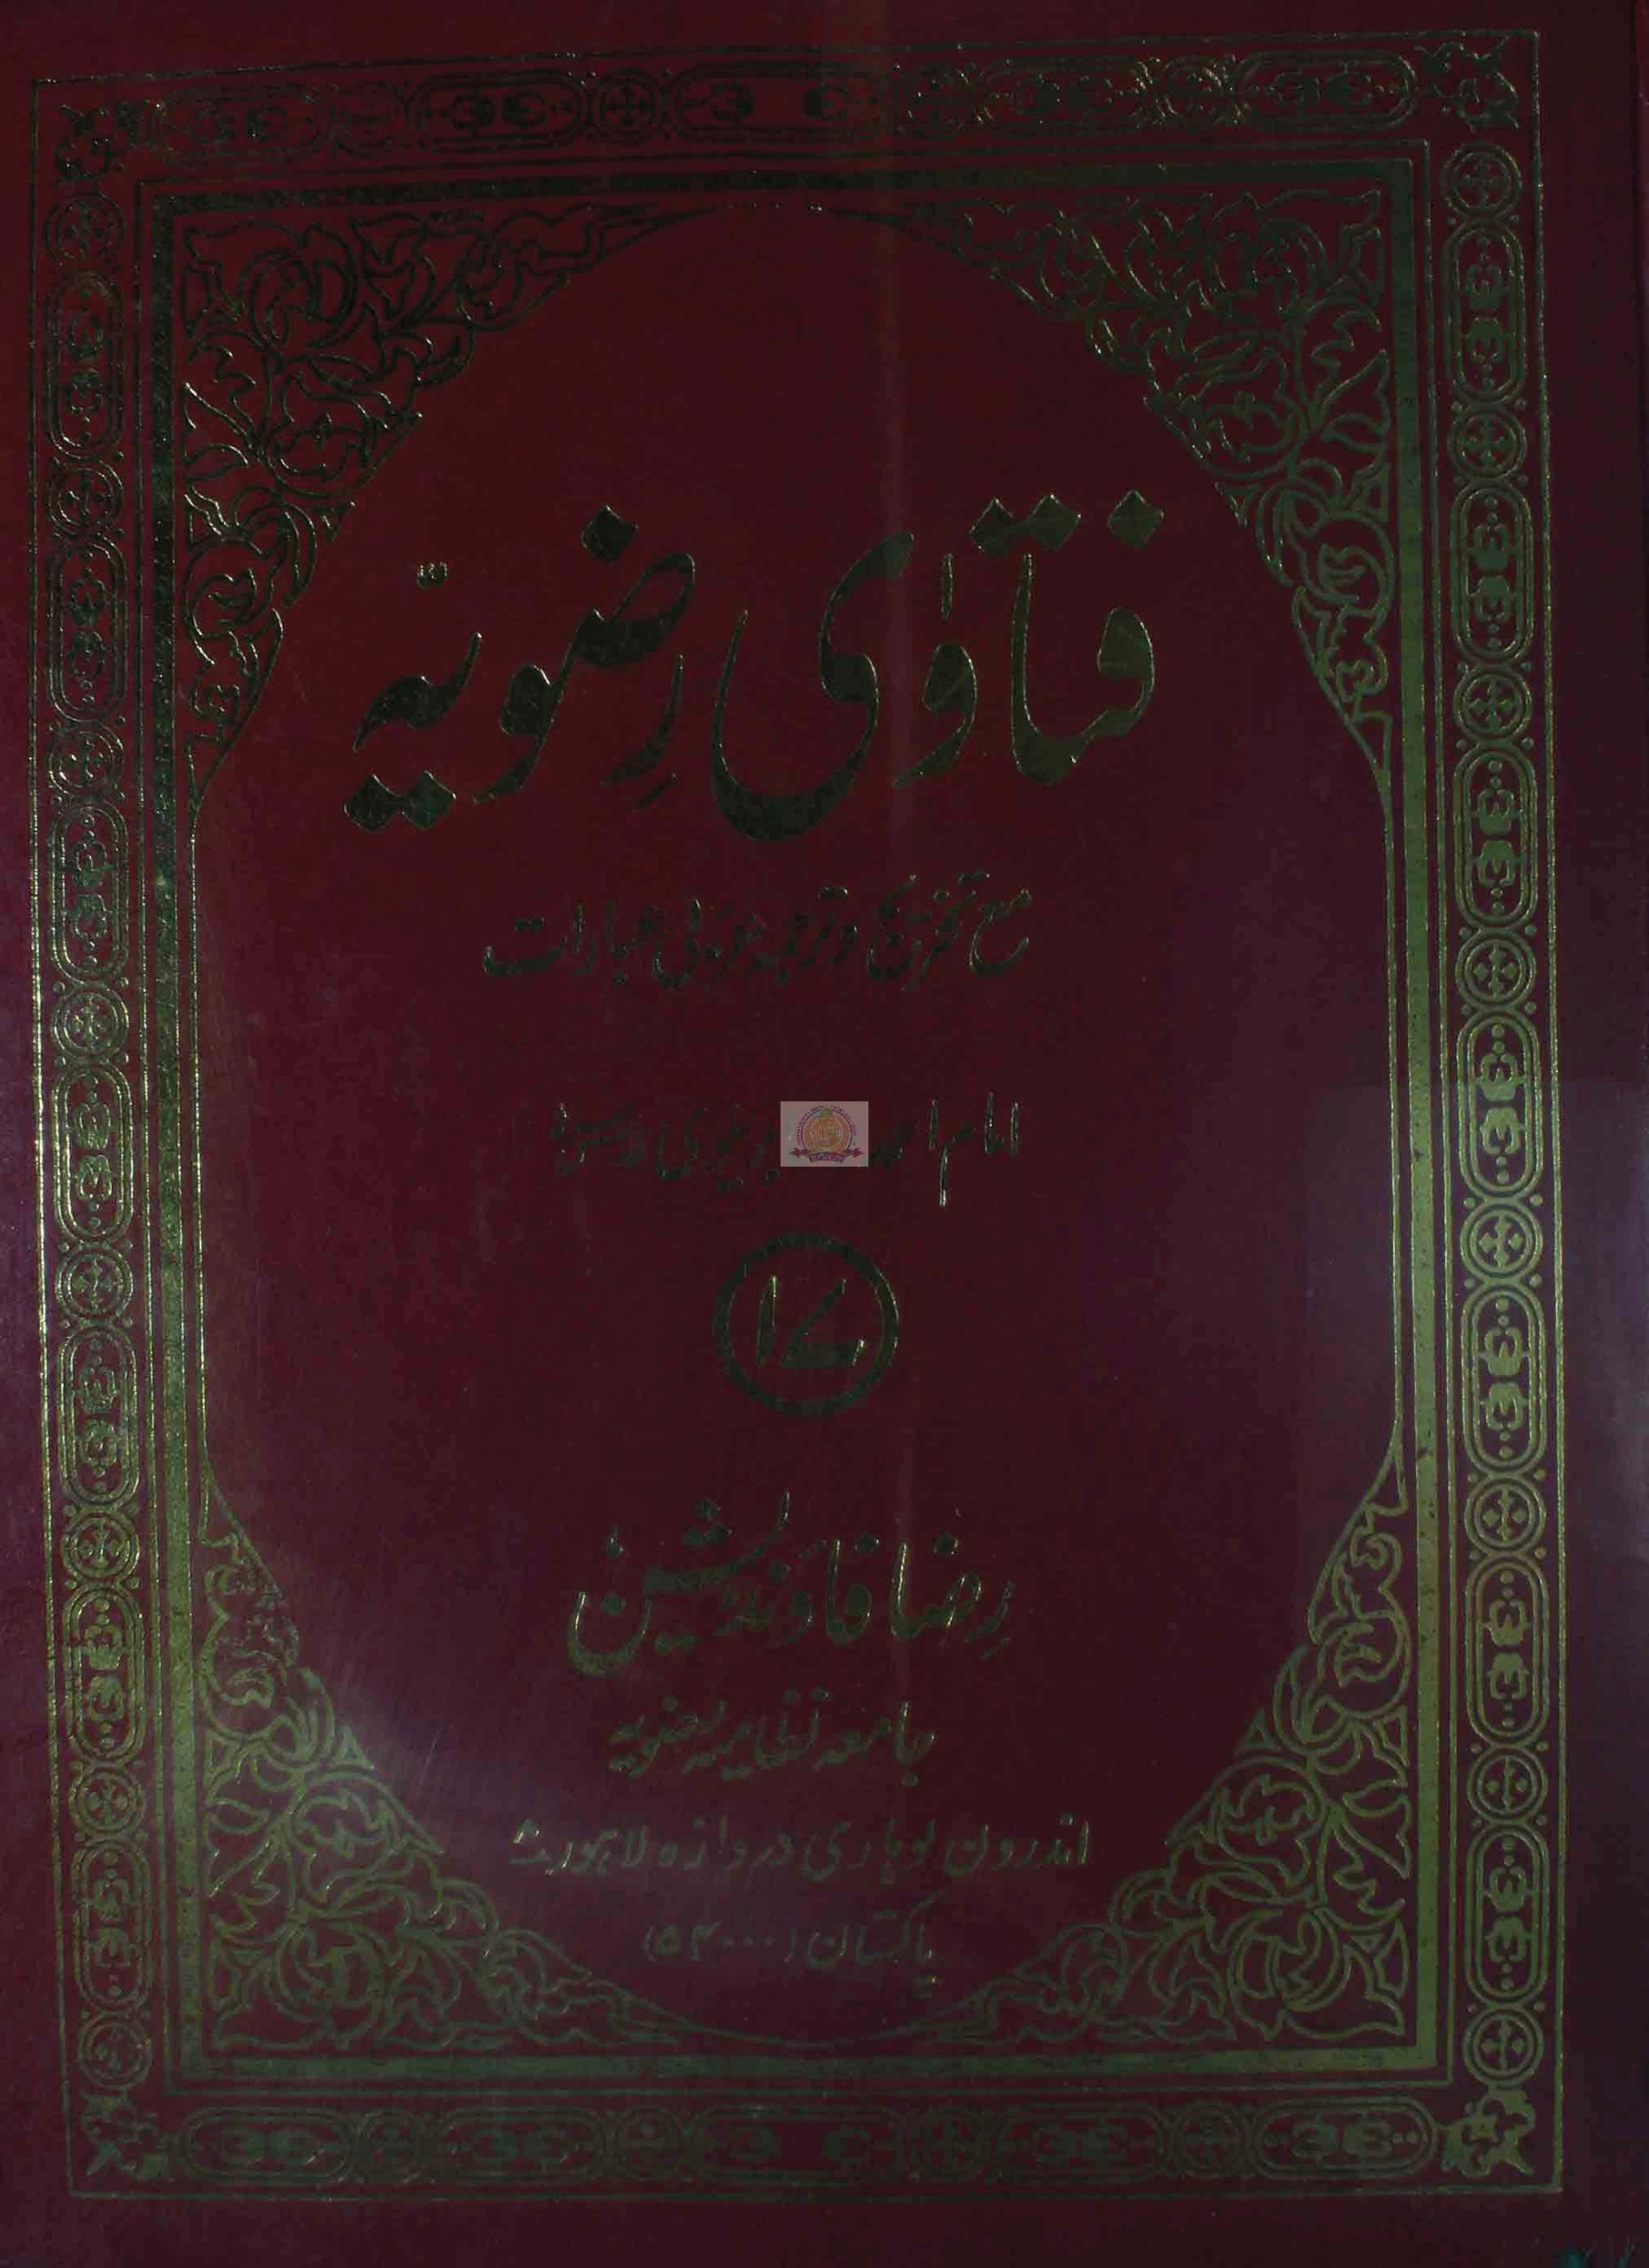 فتاوٰی رِضویّہ
مع تخریج و ترجمہ عربی عبارات
امام احمد بریلوی
۱۷
رِضا فاؤنڈیشن
جامعہ نظامیہ رضویہ
اندرون لوہاری دروازہ لاہور
پاکستان (۵۴۰۰۰)